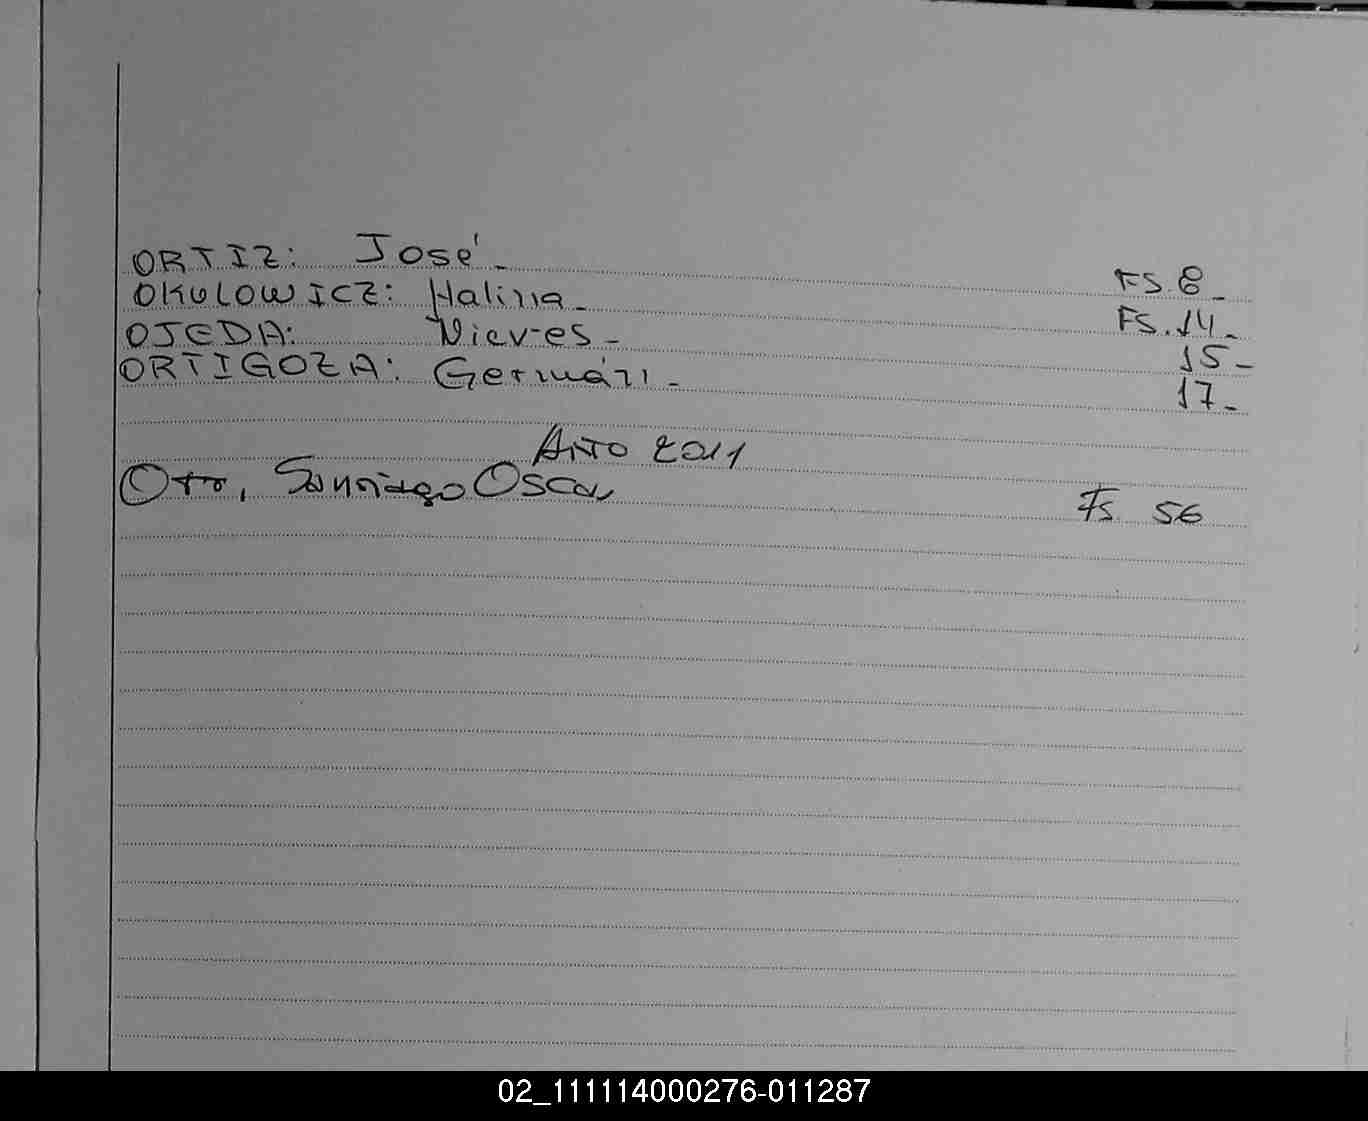 ORTIZ: José- FS. 8-
OKULOWICZ: Halina- FS. 14-
OJEDA: Nieves- 15-
ORTIGOZA: Germán- 17-
AÑO 2011
Oto, Santiago Oscar Fs 56
02_111114000276-011287